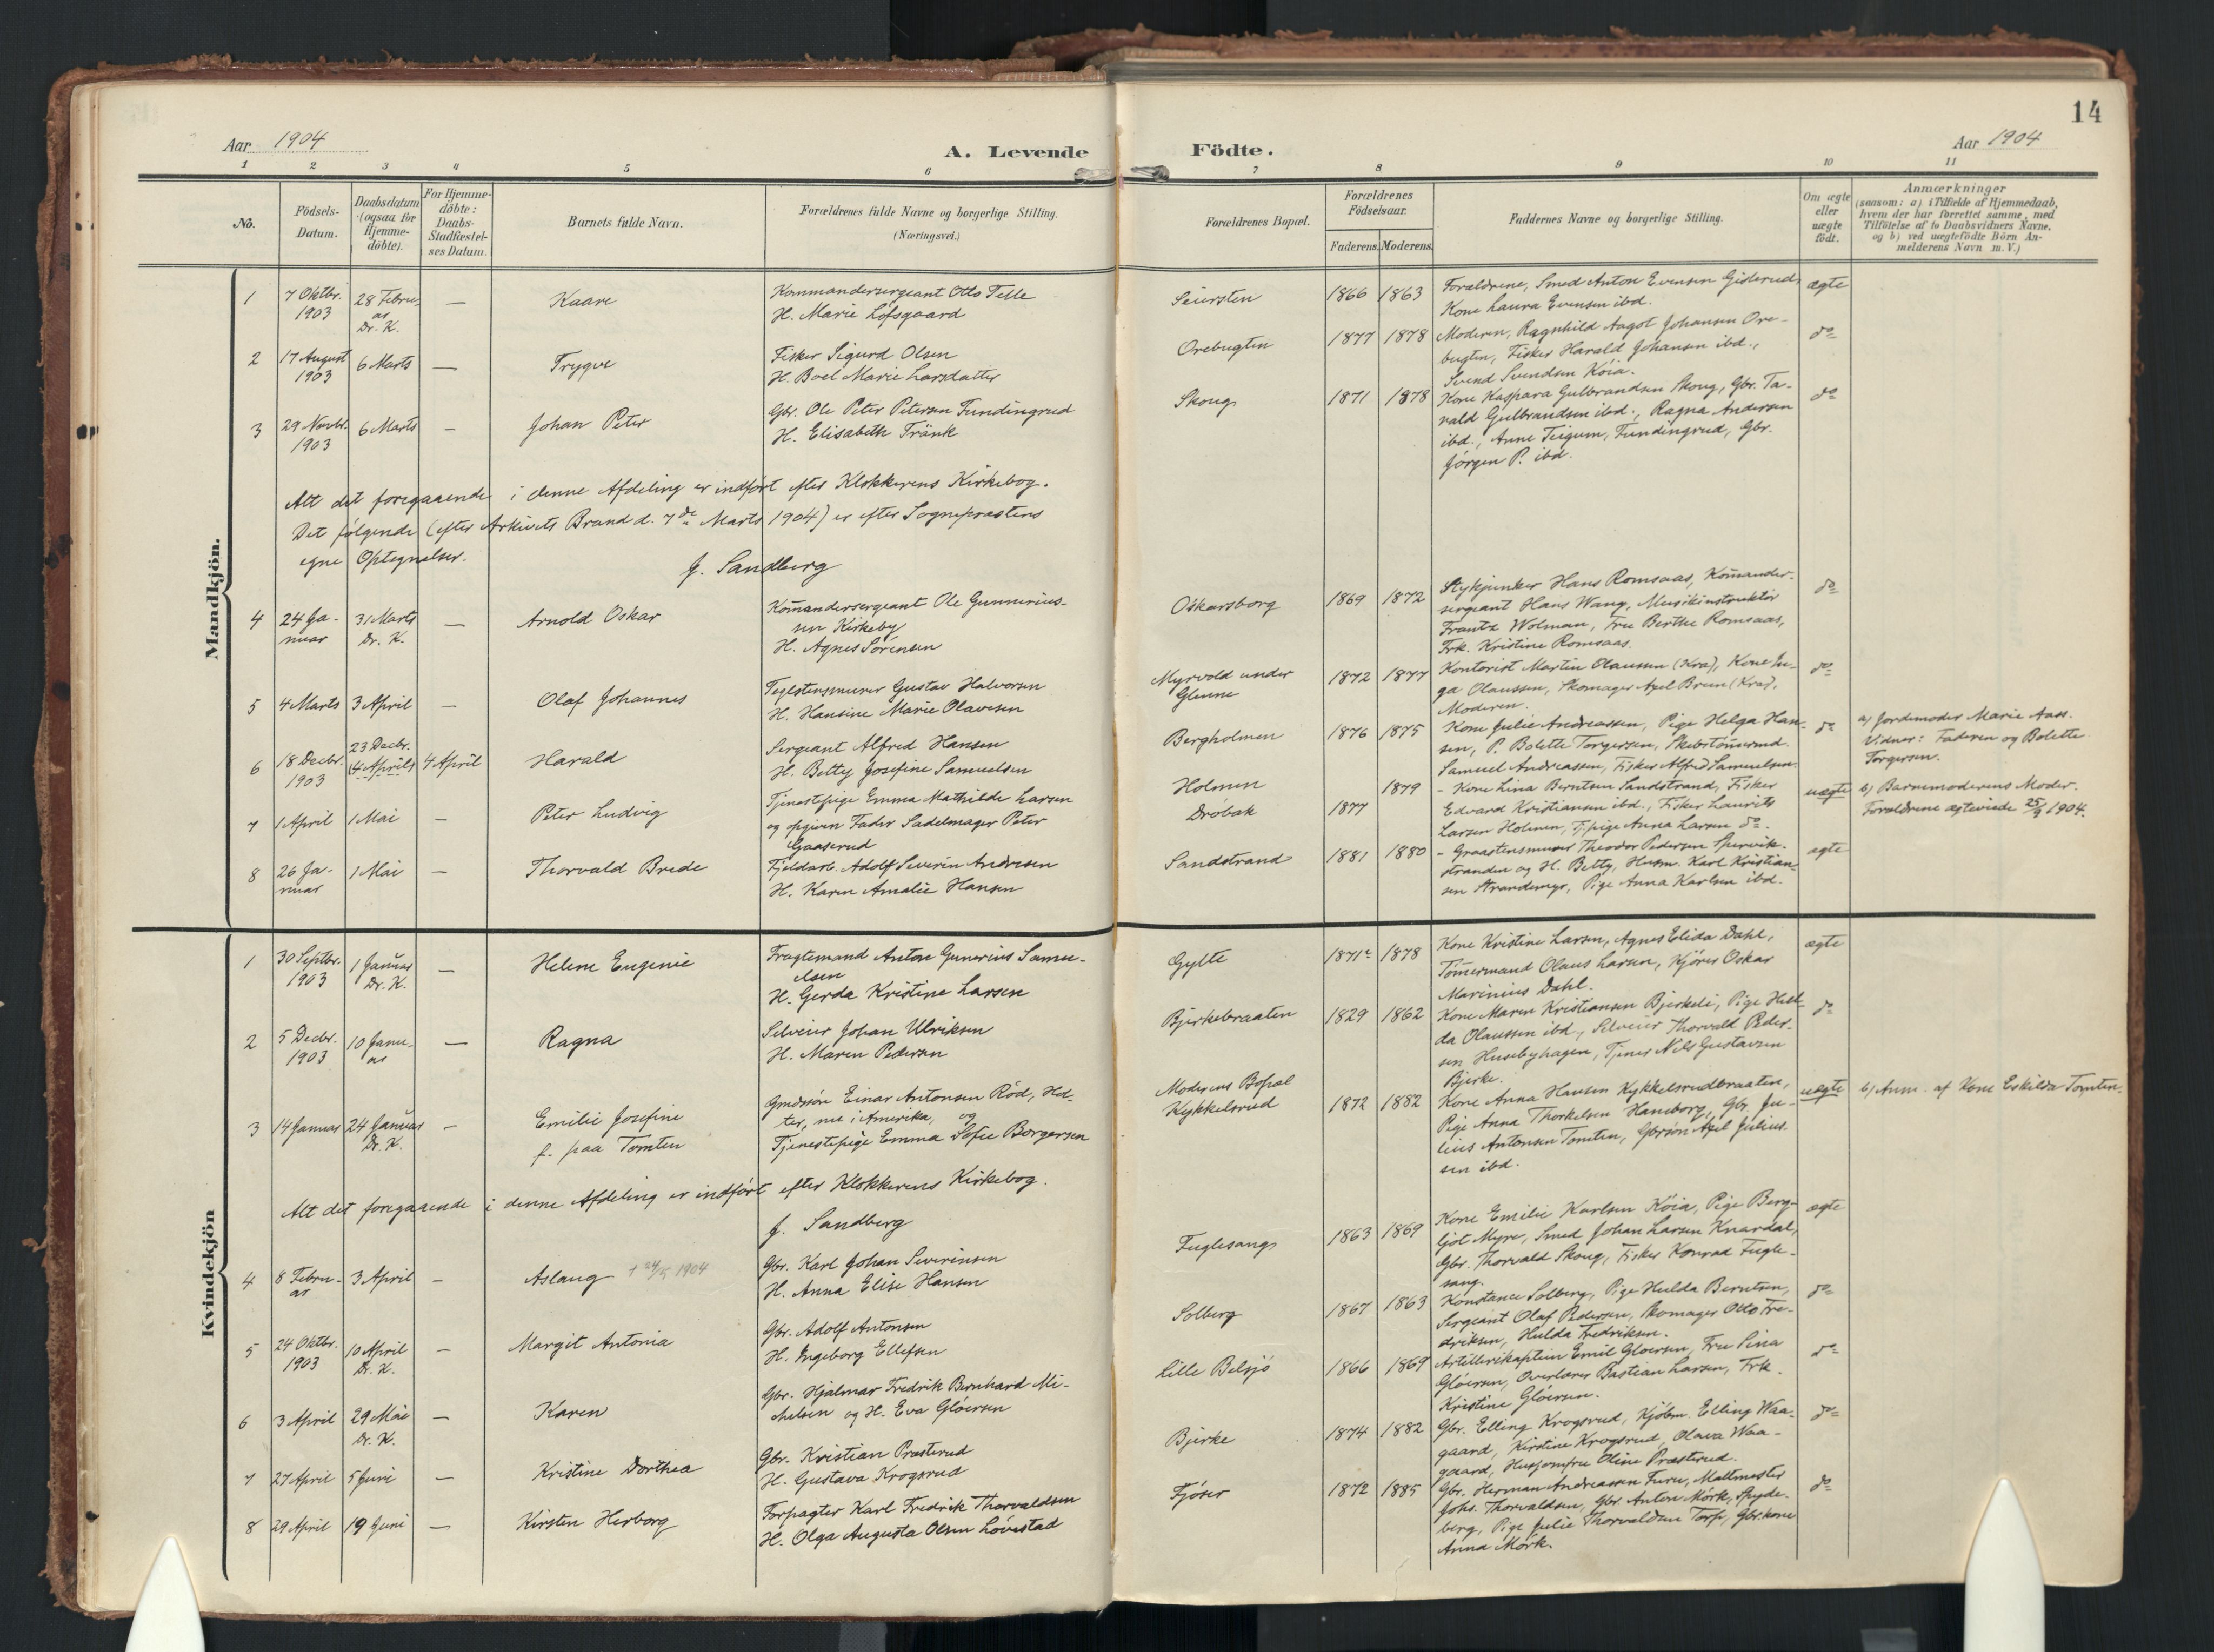 14
Aar 1904
A. Levende
Födte.
Aar 1904
1 2 3 4 5 6 7 8 9 10 11
No.
Födsels-Datum.
Daabsdatum (ogsaa for Hjemme-döbte).
For Hjemme-döbte: Daabs-Stadfæstel-ses Datum.
Barnets fulde Navn.
Forældrenes fulde Navne og borgerlige Stilling.
(Næringsvei.)
Forældrenes Bopæl.
Forældrenes Födselsaar.
Faderens. Moderens.
Faddernes Navne og borgerlige Stilling.
Om ægte eller uægte födt.
Anmærkninger
(saasom: a) i Tilfælde af Hjemmedaab,
hvem der har forrettet samme, med
Tilföielse af to Daabsvidners Navne,
og b) ved uægtefödte Börn An-
melderens Navn m.V.)
Mandkjön.
1 7 Oktbr. 1903 28 Febru-ar Dr. K. — Kaare
Kommandersergeant Otto Telle
H. Marie Lofsgaard
Seiersten 1866 1863
Forældrene, Smed Anton Evensen Gislerud,
Kone Laura Evensen ibd.
ægte
2 17 August 1903 6 Marts — Trygve
Fisker Sigurd Olsen
H. Boel Marie Larsdatter
Orebugten 1877 1878
Moderen, Ragnhild Aagot Johansen Ore-
bugten, Fisker Harald Johansen ibd.,
Svend Svendsen Köia.
do
3 29 Novbr. 1903 6 Marts — Johan Peter
Gbr. Ole Peter Petersen Fundingrud
H. Elisabeth Tränk
Skoug 1871 1878
Kone Kaspara Gulbrandsen Skoug, Gbr. Ta-
vald Gulbrandsen ibd., Ragna Andersen
ibd., Anne Teigum, Fundingrud, Gbr.
Jörgen P. ibd.
do
Alt det foregaaende i denne Afdeling er indfört efter Klokkerens Kirkebog.
Det fölgende (efter Arkivets Brand d. 7de Marts 1904) er efter Sognepræstens
egne Optegnelser.
J. Sandberg
4 24 Ja-nuar 31 Marts Dr. K. — Arnold Oskar
Kom̄andersergeant Ole Gunnerius-
sen Kirkeby
H. Agnes Sörensen
Oskarsborg 1869 1872
Stykjunker Hans Romsaas, Kom̄ander-
sergeant Hans Wang, Musikinstruktör
Frantz Wolman, Fru Berthe Romsaas,
Frk. Kristine Romsaas.
do
5 4 Marts 3 April — Olaf Johannes
Teglstensmurer Gustav Halvorsen
H. Hansine Marie Olavesen
Myrvold under
Glenne 1872 1877
Kontorist Martin Olaussen (Kra), Kone In-
ga Olaussen, Skomager Axel Bruun (Kra),
Moderen.
do
6 18 Decbr. 1903 23 Decbr. (4 April) 4 April Harald
Sergeant Alfred Hansen
H. Betty Josefine Samuelsen
Bergholmen 1876 1875
Kone Julie Andreassen, Pige Helga Han-
sen, P. Bolette Torgersen, Skibstöm̄ermd.
Samuel Andreassen, Fisker Alfred Samuelsen.
do
a) Jordemoder Marie Aass.
Vidner: Faderen og Bolette
Torgersen.
7 1 April 1 Mai — Peter Ludvig
Tjenestepige Emma Mathilde Larsen
og opgiven Fader Sadelmager Peter
Gaaserud
Holmen 1879
Dröbak 1877
- Kone Lina Berntsen Sandstrand, Fisker
Edvard Kristiansen ibd., Fisker Laurits
Larsen Holmen, Tj.pige Anna Larsen do.
uægte
b) Barnemoderens Moder.
Forældrene ægteviede 25/9 1904.
8 26 Ja-nuar 1 Mai — Thorvald Brede
Fjeldarb. Adolf Severin Andresen
H. Karen Amalie Hansen
Sandstrand 1881 1880
- Graastensmurer Theodor Pedersen Spervik-
stranden og H. Betty, Husm. Karl Kristian-
sen Strandengr, Pige Anna Karlsen ibd.
ægte
Kvindekjön
1 30 Septbr. 1903 1 Januar Dr. K. — Helene Eugenie
Fragtemand Anton Gunerius Samu-
elsen
H. Gerda Kristine Larsen
Gylte 1871 1878
Kone Kristine Larsen, Agnes Elida Dahl,
Töm̄ermand Olaus Larsen, Kjörer Oskar
Marinius Dahl.
ægte
2 5 Decbr. 1903 10 Janu-ar — Ragna
Selveier Johan Ulriksen
H. Maren Pedersen
Bjerkebraaten 1829 1862
Kone Maren Kristiansen Bjerkeli, Pige Hil-
da Olaussen ibd., Selveier Thorvald Peder-
sen Husebyhagen, Tjener Nils Gustavsen
Bjerke.
do
3 14 Januar 24 Januar Dr. K. — Emilie Josefine
f. paa Tomten
Gmdssön Einar Antonsen Röd, Hol-
ter, nu i Amerika, og
Tjenestepige Emma Sofie Borgersen
Moderens Bopæl
Kykkelsrud 1872 1882
Kone Anna Hansen Kykkelsrudbraaten,
Pige Anna Thorkelsen Hamborg, Gbr. Ju-
lius Antonsen Tomten, Gbrsön Axel Julius-
sen ibd.
uægte
b) Anm. af Kone Eskilda Tomten.
Alt det foregaaende i denne Afdeling er indfört efter Klokkerens Kirkebog.
J. Sandberg
4 8 Febru-ar 3 April — Aslaug † 24/5 1904
Gbr. Karl Johan Severinsen
H. Anna Elise Hansen
Fuglesang 1863 1869
Kone Emilie Karlsen Köia, Pige Berg-
ljot Myre, Smed Johan Larsen Knardal,
Gbr. Thorvald Skoug, Fisker Konrad Fugle-
sang.
ægte
5 24 Oktbr. 1903 10 April Dr. K. — Margit Antonia
Gbr. Adolf Antonsen
H. Ingeborg Ellefsen
Solberg 1867 1863
Konstance Solberg, Pige Hulda Berntsen,
Sergeant Olaf Pedersen, Skomager Otto Fre-
driksen, Hulda Fredriksen.
do
6 3 April 29 Mai Dr. K. — Karen
Gbr. Hjalmar Fredrik Bernhard Mi-
chelsen og H. Eva Glöersen
Lille Belsjö 1866 1869
Artillerikaptein Emil Glöersen, Fru Sina
Glöersen, Overlærer Bastian Larsen, Frk.
Kristine Glöersen.
do
7 27 April 5 Juni — Kristine Dorthea
Gbr. Kristian Præsterud
H. Gustava Krogsrud
Bjerke 1874 1882
Gbr. Elling Krogsrud, Kjöbm. Elling Waa-
gaard, Kirstine Krogsrud, Olava Waa-
gaard, Husjomfru Oline Præsterud.
do
8 29 April 19 Juni — Kirsten Herborg
Forpagter Karl Fredrik Thorvaldsen
H. Olga Augusta Olsen Lövestad
Fjöser 1872 1885
Gbr. Herman Andreassen Furu, Maltmester
Johs. Thorvaldsen, Gbr. Anton Mörk, Spyde-
berg, Pige Julie Thorvaldsen Torp, Gbr.kone
Anna Mörk.
do